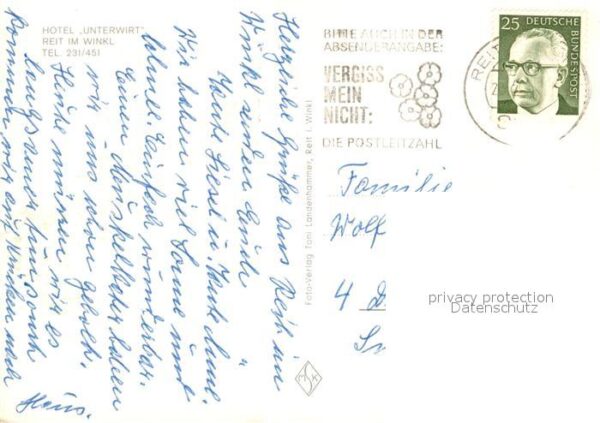 HOTEL „UNTERWIRT"
REIT IM WINKL
TEL. 231/451
Herzliche Grüße aus Reit im
Winkl senden Euch
Wir haben viel Sonne und
Schnee. Einfach wunderbar.
Einen Muskelkater haben
wir uns schon geholt.
Heute müssen wir es
langsamer tun, sonst
kommen wir auf Krücken nach
Haus.
Foto-Verlag Toni Landenhammer, Reit i. Winkl
MSK
BITTE AUCH IN DER
ABSENDERANGABE:
VERGISS
MEIN
NICHT:
DIE POSTLEITZAHL
REIT
25 DEUTSCHE
BUNDESPOST
Familie
Wolf
4 D
privacy protection
Datenschutz